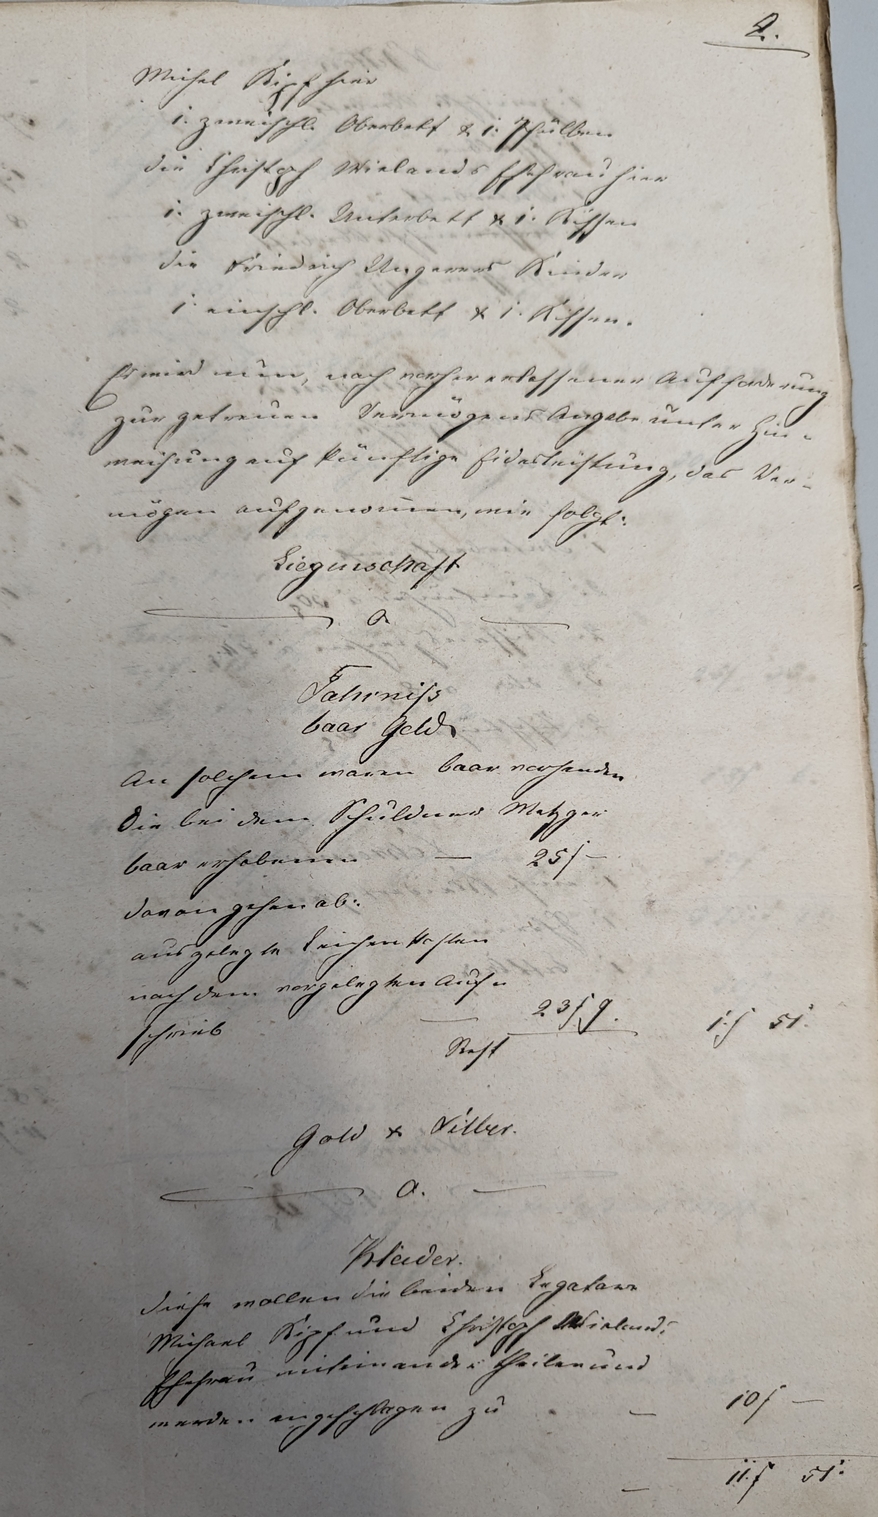 2.
Michel Kipf hier
1. zweischl. Oberbett & 1. Pfülben
die Christoph Wielands Ehefrau hier
1. zweischl. Unterbett & 1. Kissen
die Friedrich Ungerers Kinder
1. einschl. Oberbett & 1. Kissen.
Es wird nun, nach vorher erlassener Aufforderung
zur getreuen Vermögens Angabe unter Hin-
weisung auf künftige Eidesleistung, das Ver-
mögen aufgenom̅en, wie folgt:
Liegenschaft
0.
Fahrniß
baar Geld
An solchem waren baar vorhanden
Die bei dem Schuldner Metzger
baar erhobenen — 25f —
davon gehen ab:
ausgelegte Leichenkosten
nach dem vorgelegten Auf-
schrieb — 23f 9.
Rest 1.f 51.
Gold & Silber.
0.
Kleider.
diese wollen die beiden Legatare
Michael Kipf und Christoph Wielands
Ehefrau miteinander theilen und
werden angeschlagen zu — 10f —
— 11.f 51.